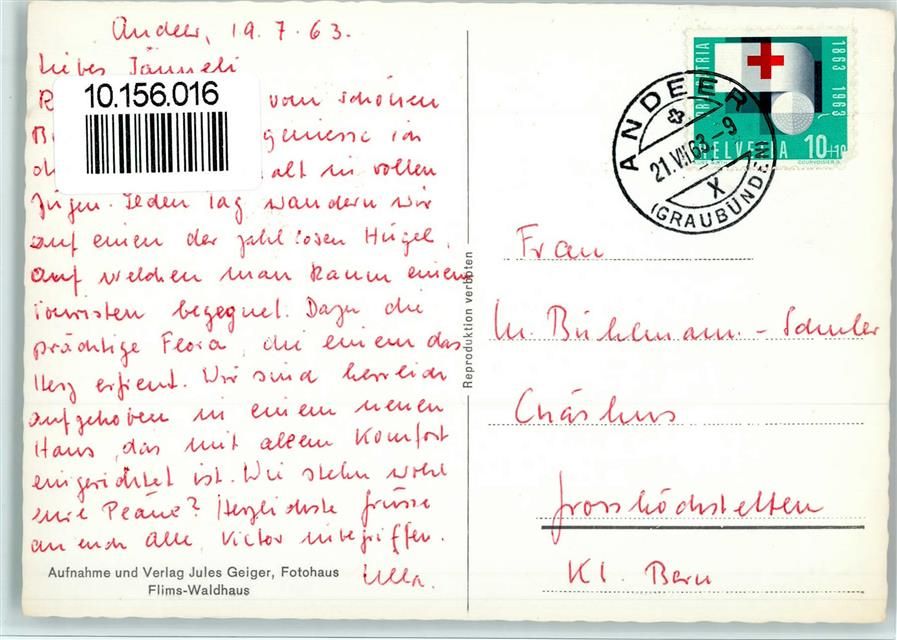 Andeer, 19.7.63.
Liebes Jänneli
10.156.016
vom schönen
geniesse ich
alt in vollen
Zügen. Jeden Tag wandern wir
auf einen der zahllosen Hügel,
auf welchen man kaum einem
Touristen begegnet. Dazu die
prächtige Flora, die einem das
Herz erfreut. Wir sind herrlich
aufgehoben in einem neuen
Haus, das mit allem Komfort
eingerichtet ist. Wie stehn wohl
eure Pläne? Herzlichste Grüsse
an euch alle, Victor inbegriffen.
Ulla.
Aufnahme und Verlag Jules Geiger, Fotohaus
Flims-Waldhaus
Reproduktion verboten
1863 1963
HELVETIA 10+10
COURVOISIER S.
ANDEER
21.VII.63-9
X
(GRAUBÜNDEN)
Frau
M. Bühlmann-Schuler
Chäshus
Grosshöchstetten
Kt. Bern